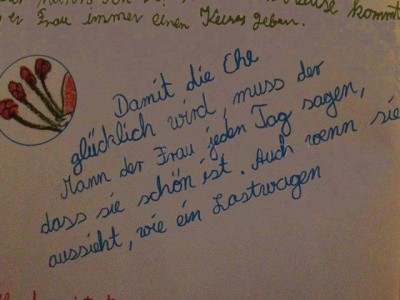 er Frau immer einen Keuss geben.
Damit die Ehe
glücklich wird, muss der
Mann der Frau jeden Tag sagen,
dass sie schön ist. Auch wenn sie
aussieht, wie ein Lastwagen